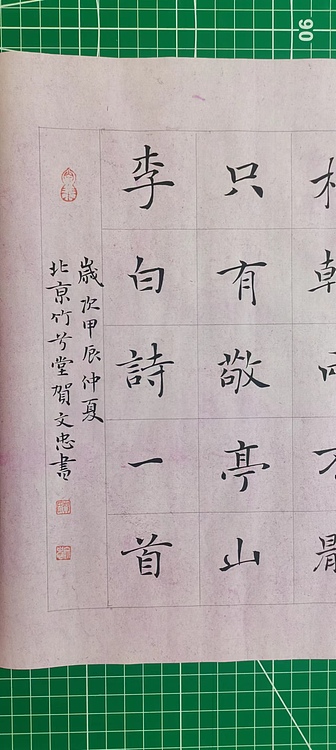 只有敬亭山
李白詩一首
歲次甲辰仲夏
北京竹兮堂賀文忠書
90